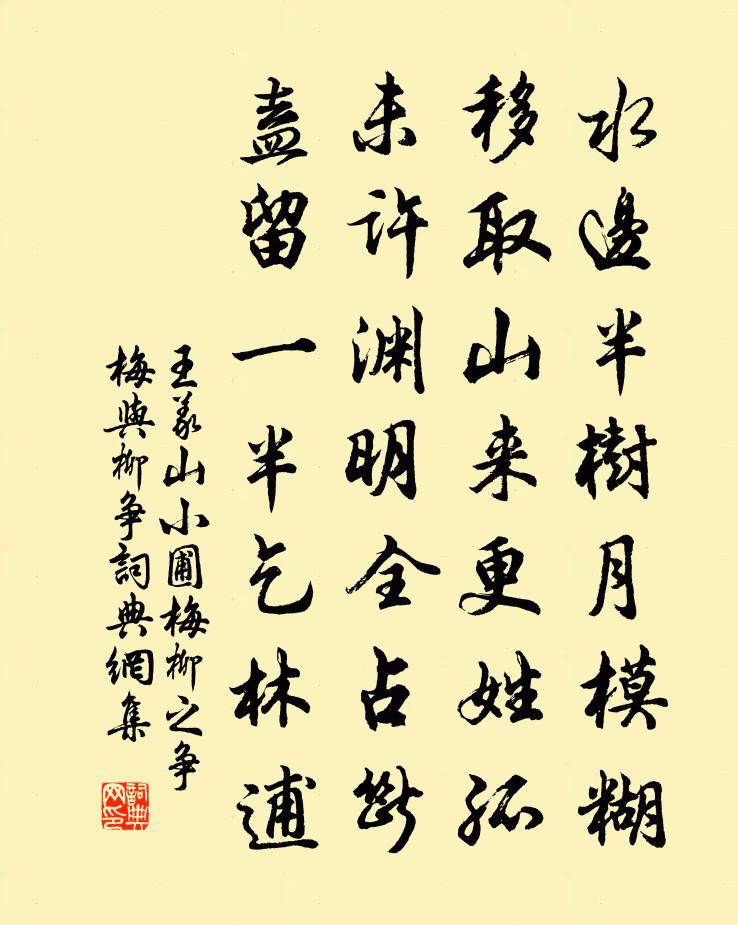 水邊半樹月模糊
移取山来更姓孤
未許渊明全占斷
盍留一半乞林逋
王義山小圃梅柳之争
梅與柳争詞典網集
詞典网印